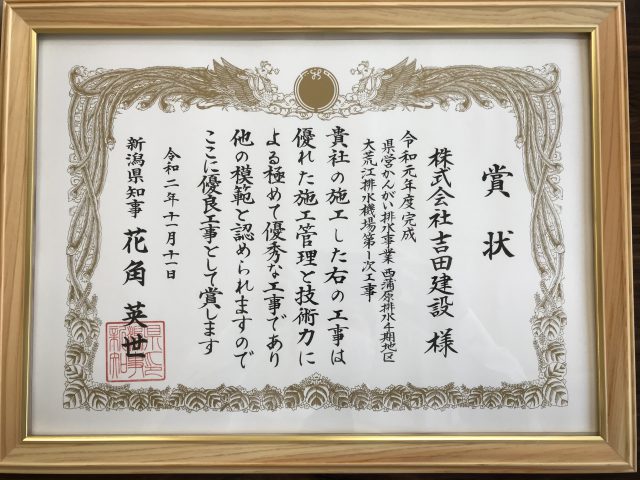 賞状
株式会社吉田建設 様
令和元年度完成
県営かんがい排水事業 西蒲原排水4期地区
大荒江排水機場第1次工事
貴社の施工した右の工事は
優れた施工管理と技術力に
よる極めて優秀な工事であり
他の模範と認められますので
ここに優良工事として賞します
令和二年十一月十一日
新潟県知事 花角英世